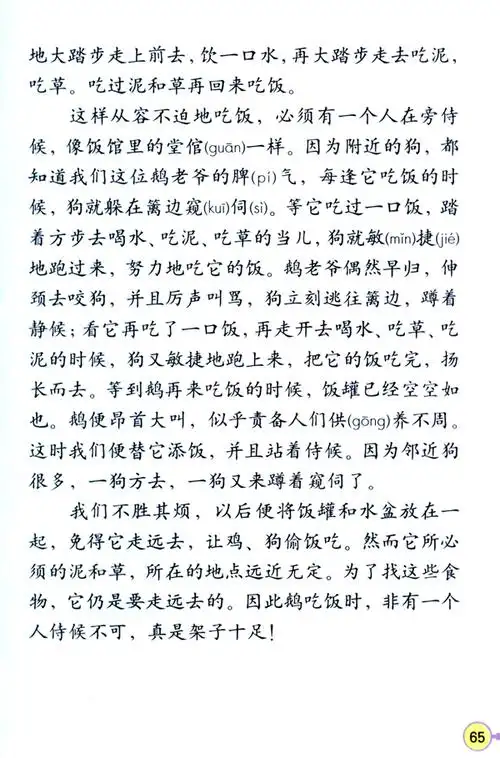 地大踏步走上前去，饮一口水，再大踏步走去吃泥，
吃草。吃过泥和草再回来吃饭。
这样从容不迫地吃饭，必须有一个人在旁侍
候，像饭馆里的堂倌(guān)一样。因为附近的狗，都
知道我们这位鹅老爷的脾(pí)气，每逢它吃饭的时
候，狗就躲在篱边窥(kuī)伺(sì)。等它吃过一口饭，踏
着方步去喝水、吃泥、吃草的当儿，狗就敏(mǐn)捷(jié)
地跑过来，努力地吃它的饭。鹅老爷偶然早归，伸
颈去咬狗，并且厉声叫骂，狗立刻逃往篱边，蹲着
静候；看它再吃了一口饭，再走开去喝水、吃草、吃
泥的时候，狗又敏捷地跑上来，把它的饭吃完，扬
长而去。等到鹅再来吃饭的时候，饭罐已经空空如
也。鹅便昂首大叫，似乎责备人们供(gōng)养不周。
这时我们便替它添饭，并且站着侍候。因为邻近狗
很多，一狗方去，一狗又来蹲着窥伺了。
我们不胜其烦，以后便将饭罐和水盆放在一
起，免得它走远去，让鸡、狗偷饭吃。然而它所必
须的泥和草，所在的地点远近无定。为了找这些食
物，它仍是要走远去的。因此鹅吃饭时，非有一个
人侍候不可，真是架子十足！
65